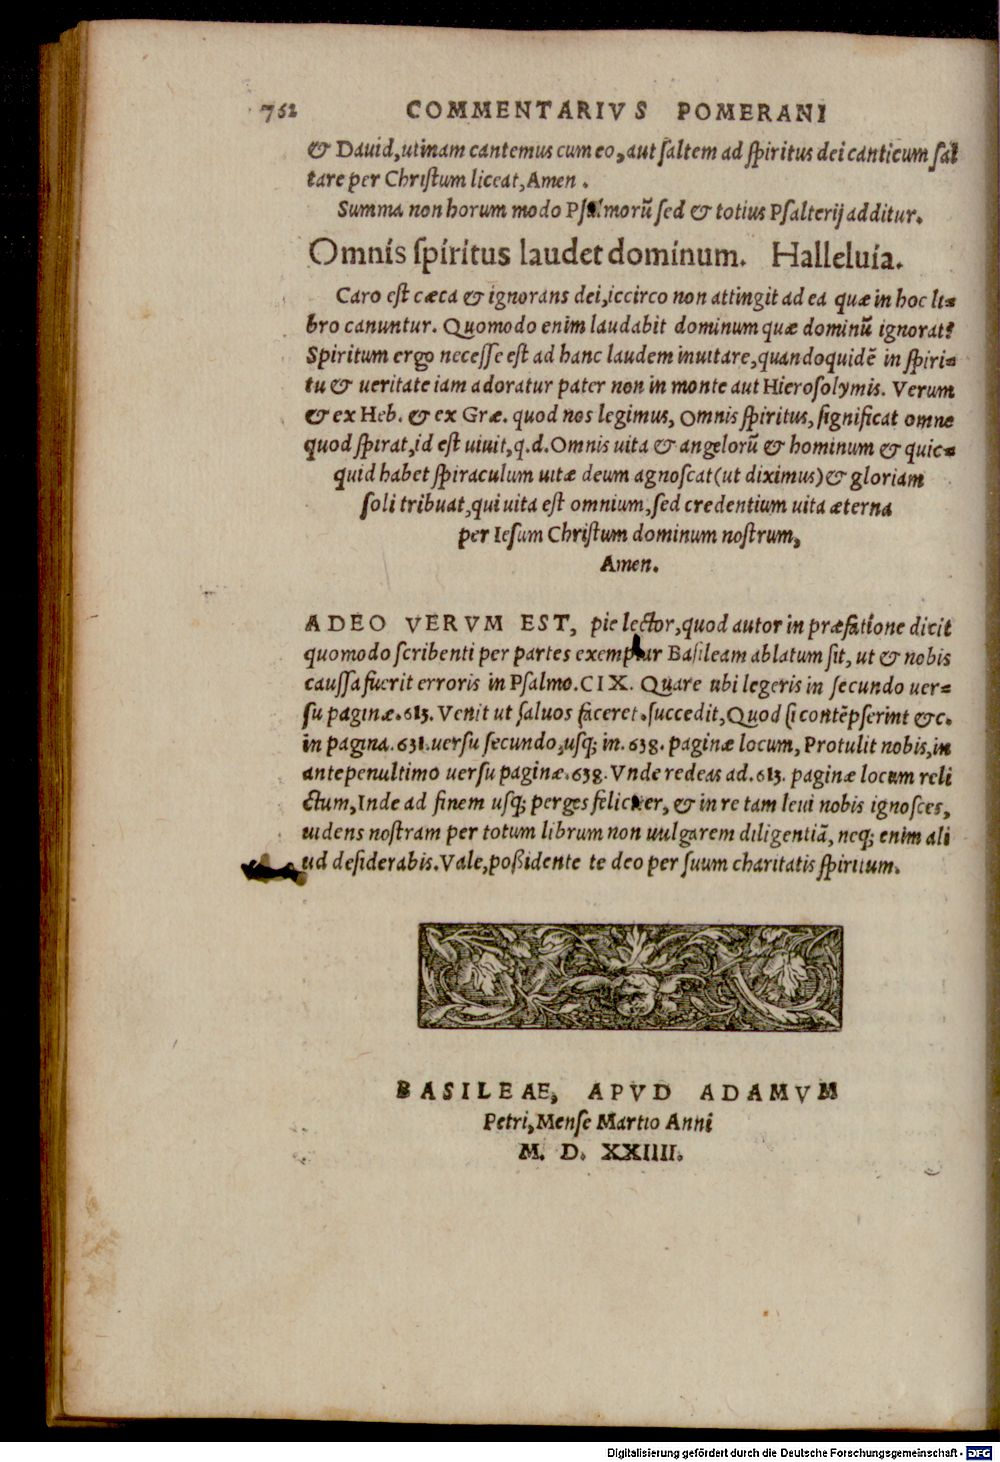 762 COMMENTARIVS POMERANI
& Dauid, utinam cantemus cum eo, aut ſaltem ad ſpiritus dei canticum ſal
tare per Chriſtum liceat, Amen .
Summa non horum modo Pſalmorũ ſed & totius Pſalterij additur.
Omnis ſpiritus laudet dominum. Halleluia.
Caro eſt cæca & ignorans dei, iccirco non attingit ad ea quæ in hoc li⸗
bro canuntur. Quomodo enim laudabit dominum quæ dominũ ignorat?
Spiritum ergo neceſſe eſt ad hanc laudem inuitare, quandoquidẽ in ſpiri⸗
tu & ueritate iam adoratur pater non in monte aut Hieroſolymis. Verum
& ex Heb. & ex Græ. quod nos legimus, Omnis ſpiritus, ſignificat omne
quod ſpirat, id eſt uiuit, q.d. Omnis uita & angelorũ & hominum & quic⸗
quid habet ſpiraculum uitæ deum agnoſcat (ut diximus) & gloriam
ſoli tribuat, qui uita eſt omnium, ſed credentium uita æterna
per Ieſum Chriſtum dominum noſtrum,
Amen.
ADEO VERVM EST, pie lector, quod autor in præfatione dicit
quomodo ſcribenti per partes exemplar Baſileam ablatum ſit, ut & nobis
cauſſa fuerit erroris in Pſalmo. CIX. Quare ubi legeris in ſecundo uer⸗
ſu paginæ. 613. Venit ut ſaluos faceret. ſuccedit, Quod ſi contẽpſerint &c.
in pagina. 631. uerſu ſecundo, uſq; in. 638. paginæ locum, Protulit nobis, in
antepenultimo uerſu paginæ. 638. Vnde redeas ad. 613. paginæ locum reli
ctum, Inde ad finem uſq; perges feliciter, & in re tam leui nobis ignoſces,
uidens noſtram per totum librum non uulgarem diligentiã, neq; enim ali
ud deſiderabis. Vale, poßidente te deo per ſuum charitatis ſpiritum.
BASILEAE, APVD ADAMVM
Petri, Menſe Martio Anni
M. D. XXIIII.
Digitalisierung gefördert durch die Deutsche Forschungsgemeinschaft - DFG